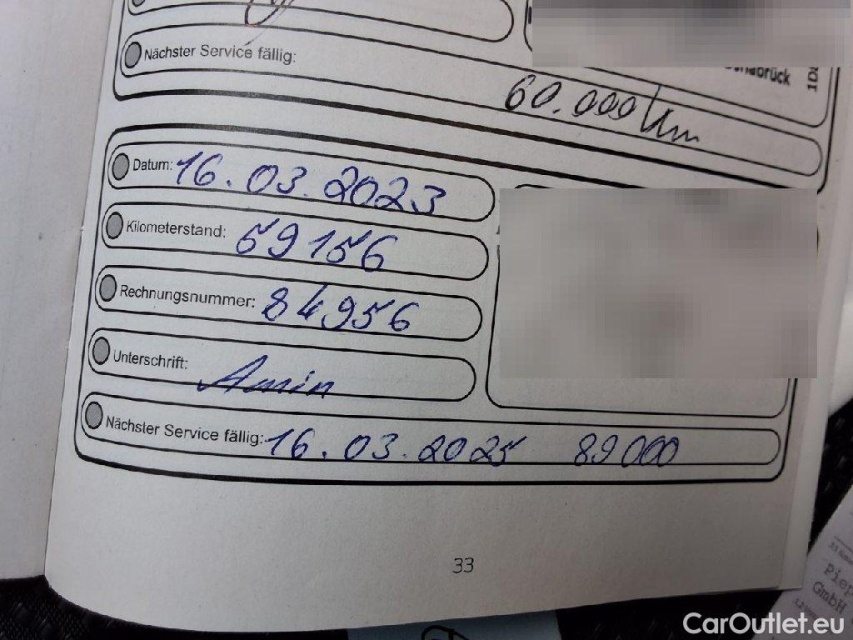 Nächster Service fällig:
60.000 km
Datum: 16.03.2023
Kilometerstand: 59156
Rechnungsnummer: 84956
Unterschrift: Amin
Nächster Service fällig: 16.03.2025 89000
33
GmbH
CarOutlet.eu